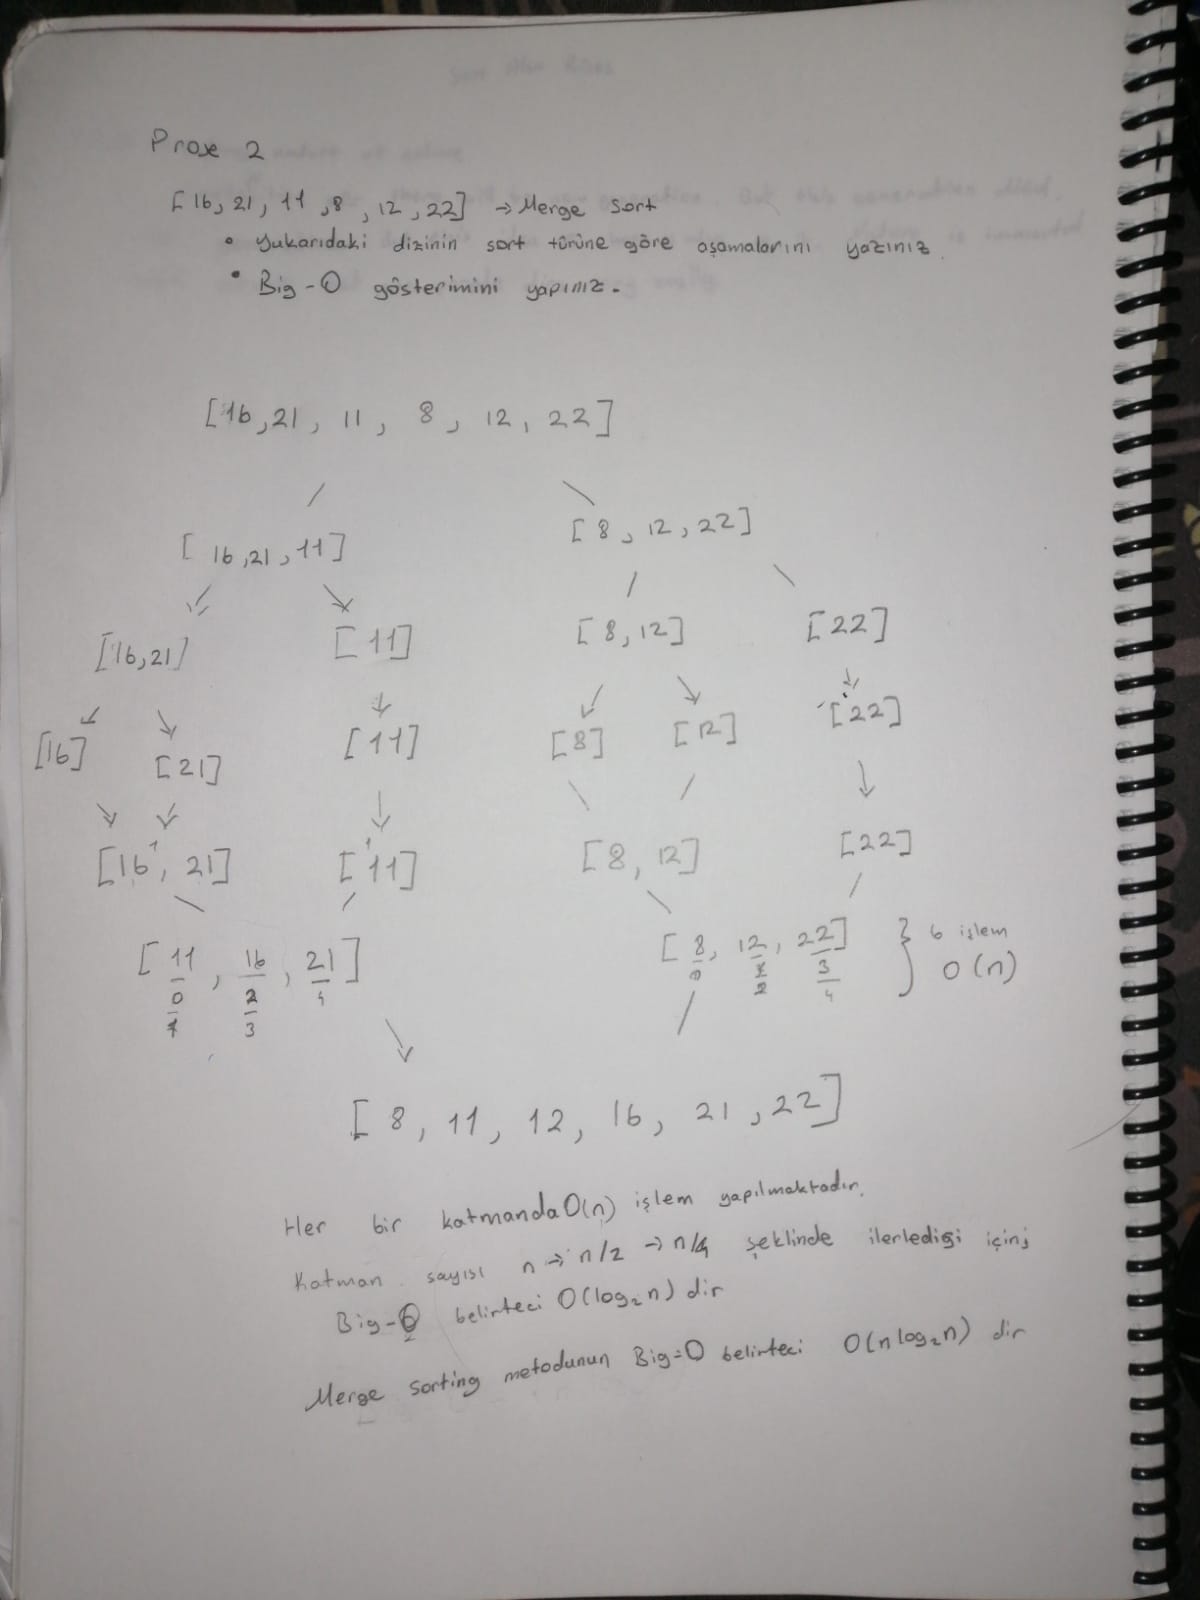 Proxe 2
[16, 21, 11, 8, 12, 22] → Merge Sort
• yukarıdaki dizinin sort türüne göre aşamalarını yazınız.
• Big-O gösterimini yapınız.
[16, 21, 11, 8, 12, 22]
[16, 21, 11] [8, 12, 22]
[16, 21] [11] [8, 12] [22]
[16] [21] [11] [8] [12] [22]
[16, 21] [11] [8, 12] [22]
[11, 16, 21] [8, 12, 22] } 6 işlem
0 2 4 0 2 3 O(n)
3 4
[8, 11, 12, 16, 21, 22]
Her bir katmanda O(n) işlem yapılmaktadır.
Katman sayısı n → n/2 → n/4 şeklinde ilerlediği için;
Big-O belirteci O(log₂n) dir
Merge sorting metodunun Big=O belirteci O(n log₂n) dir